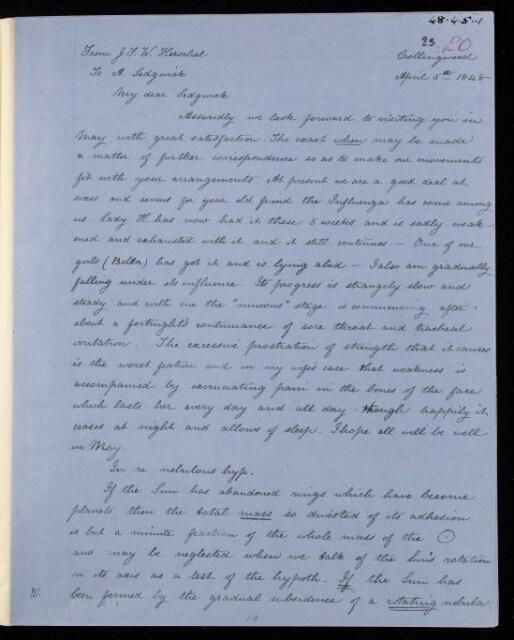 48·4·5·1
23 20
From J. F. W. Herschel Collingwood
To A. Sedgwick April 5th 1848
My dear Sedgwick
Assuredly we look forward to visiting you in
May with great satisfaction. The exact when may be made
a matter of further correspondence so as to make our movements
fit with your arrangements. At present we are a good deal at
sixes and sevens for your old friend the Influenza has come among
us. Lady H. has now had it these 5 weeks and is sadly weak-
ened and exhausted with it and it still continues — One of our
girls (Bella) has got it and is lying abed — I also am gradually
falling under its influence. Its progress is strangely slow and
steady and with me the "mucous" stage is commencing after
about a fortnight's continuance of sore throat and tracheal
irritation. The excessive prostration of strength that it causes
is the worst feature and in my wife's case that weakness is
accompanied by excruciating pain in the bones of the face
which lasts her every day and all day though happily it
ceases at night and allows of sleep. I hope all will be well
in May.
In re nebulous hyp.
If the Sun has abandoned rings which have become
planets then the total mass so divested of its adhesion
is but a minute fraction of the whole mass of the ☉
and may be neglected when we talk of the Sun's rotation
on its axis as a test of the hypoth. If the Sun has
been formed by the gradual subsidence of a rotating nebula
19